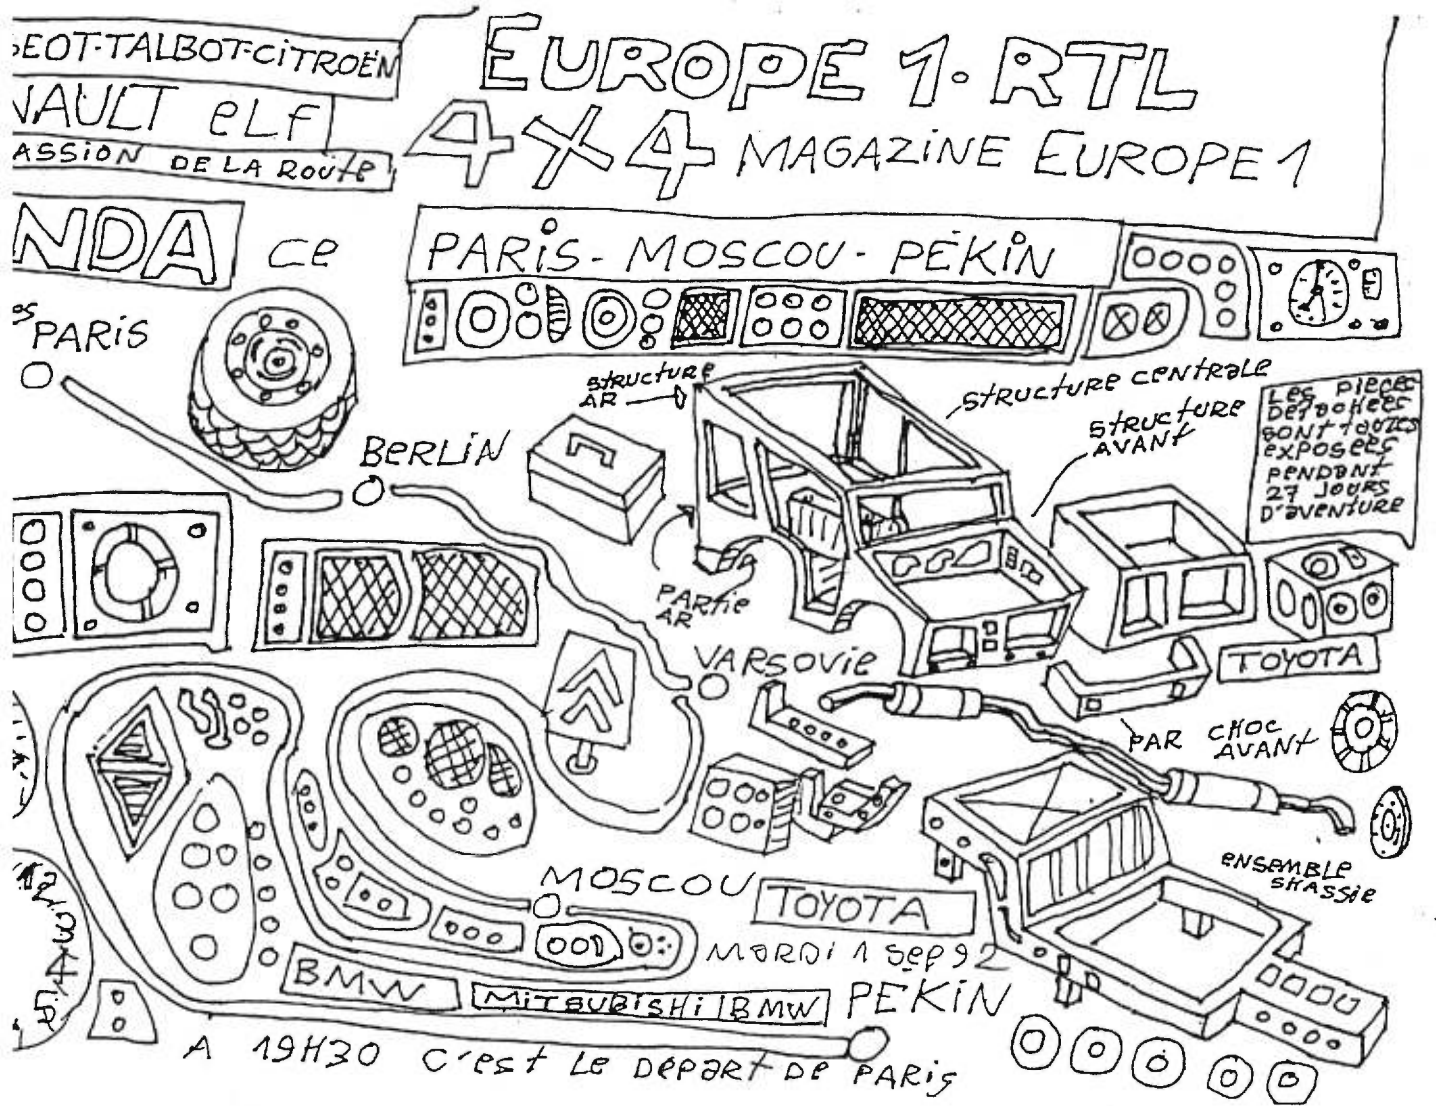 EOT-TALBOT-CITROËN
EUROPE 1. RTL
NAULT eLf
ASSION DE LA ROUtE
4X4 MAGAZINE EUROPE 1
NDA ce
PARIS - MOSCOU - PÉKIN
os PARIS
STRUCTURE
AR
STRUCTURE CENTRALE
STRUCTURE
AVANT
LES PIECES
DETACHEES
SONT TOUTES
EXPOSEES
PENDANT
27 JOURS
D'AVENTURE
BERLIN
PARTIE
AR
VARSOVIE
TOYOTA
PAR CHOC
AVANT
ENSEMBLE
SHASSIE
MOSCOU
TOYOTA
MARDI 1 SEP 92
BMW
MITSUBISHI BMW
PEKIN
A 19H30 C'est LE DEPART DE PARIS